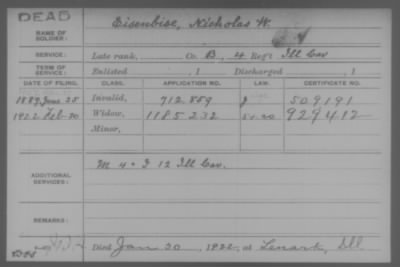 DEAD
NAME OF SOLDIER: Eisenbise, Nicholas W.
SERVICE: Late rank, Co. B, 4 Reg't Ill Cav
TERM OF SERVICE: Enlisted , 1 Discharged , 1
DATE OF FILING. CLASS. APPLICATION NO. LAW. CERTIFICATE NO.
1889 June 25 Invalid, 712.859 J 509191
1922 Feb 20 Widow, 1185232 929412
Minor,
ADDITIONAL SERVICES: M 4 + I 12 Ill Cav.
REMARKS:
Died Jan 30, 1922, at Lanark, Ill